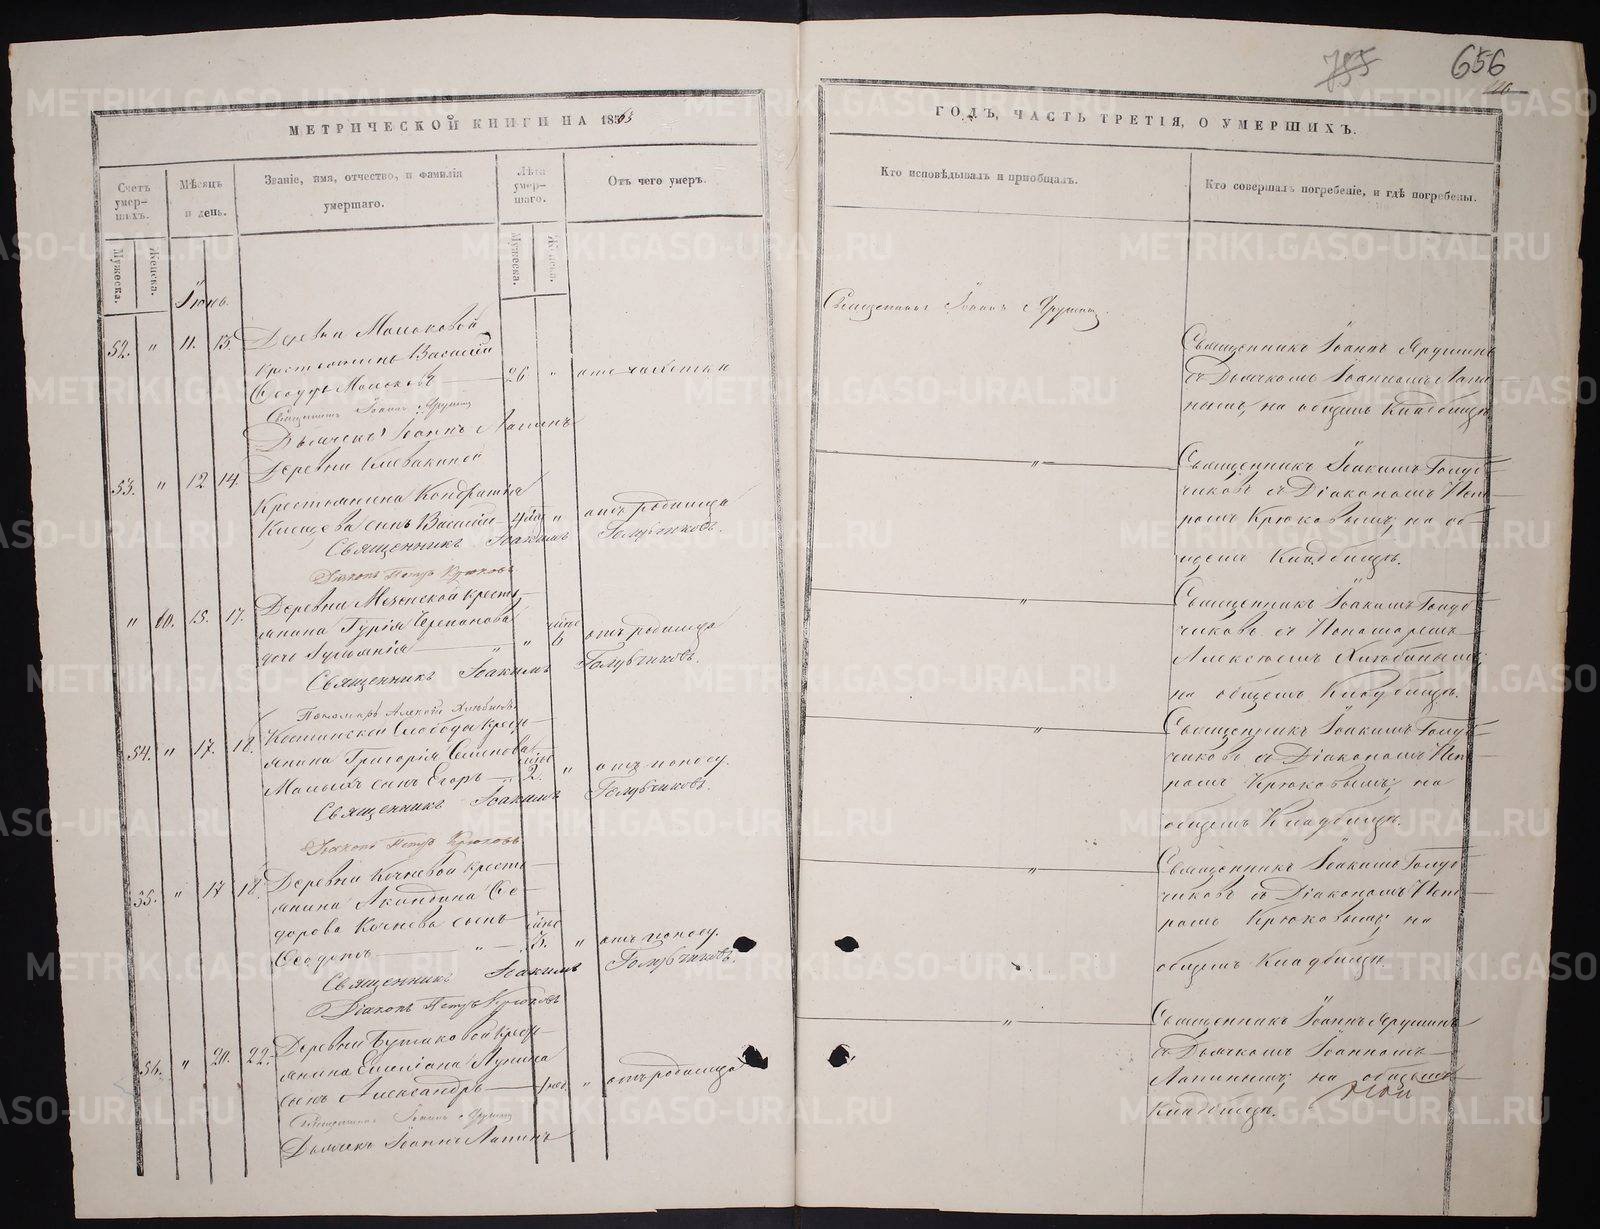 755
656
МЕТРИЧЕСКОЙ КНИГИ НА 1863
ГОДЪ, ЧАСТЬ ТРЕТІЯ, О УМЕРШИХЪ.
Счетъ умер- шихъ.
Мѣсяцъ и день.
Званіе, имя, отчество, и фамилія умершаго.
Лѣта умер- шаго.
Отъ чего умеръ.
Кто исповѣдывалъ и пріобщалъ.
Кто совершалъ погребеніе, и гдѣ погребены.
Мужеска.
Женска.
Мужеска.
Женска.
Іюнь.
52. " 11. 13. Деревни
крестьянинъ Василій
26 " отъ чахотки
Священникъ Іоаннъ Ярушинъ
Священникъ Іоаннъ Ярушинъ
съ Дьячкомъ Іоанномъ Лапи-
нымъ, на общемъ кладбищѣ.
Священникъ Іоаннъ Ярушинъ
Дьячекъ Іоаннъ Лапинъ
53. " 12 14. Деревни Клевакиной
Крестьянина Кондратія
Клещева сынъ Василій " отъ родимца
Священникъ Іоакимъ Голубчиковъ.
Діаконъ Петръ Крюковъ
Священникъ Іоакимъ Голуб-
чиковъ съ Діакономъ Пет-
ромъ Крюковымъ, на об-
щемъ Кладбищѣ.
" 60. 15. 17. Деревни кресть-
янина Гурія Черепанова
дочь " 6 отъ родимца
Священникъ Іоакимъ Голубчиковъ.
Пономарь Алексѣй
Священникъ Іоакимъ Голуб-
чиковъ съ Пономаремъ
Алексѣемъ
на общемъ Кладбищѣ.
54. " 17. 18. слободы кресть-
янина Григорія Семенова
Малыхъ сынъ Егоръ 2. " отъ поносу.
Священникъ Іоакимъ Голубчиковъ.
Діаконъ Петръ Крюковъ
Священникъ Іоакимъ Голуб-
чиковъ съ Діакономъ Пет-
ромъ Крюковымъ, на
общемъ Кладбищѣ.
55. " 17 18. Деревни Кочневой кресть-
янина Ѳе-
дорова Кочнева сынъ
" 3. " отъ поносу.
Священникъ Іоакимъ Голубчиковъ.
Діаконъ Петръ Крюковъ
Священникъ Іоакимъ Голуб-
чиковъ съ Діакономъ Пет-
ромъ Крюковымъ, на
общемъ Кладбищѣ.
56. " 20. 22. Деревни крест-
янина Емеліана Лунина
сынъ Александръ 1 " отъ родимца
Священникъ Іоаннъ Ярушинъ
Дьячекъ Іоаннъ Лапинъ
Священникъ Іоаннъ Ярушинъ
съ Дьячкомъ Іоанномъ
Лапинымъ, на общемъ
Кладбищѣ.
METRIKI.GASO-URAL.RU